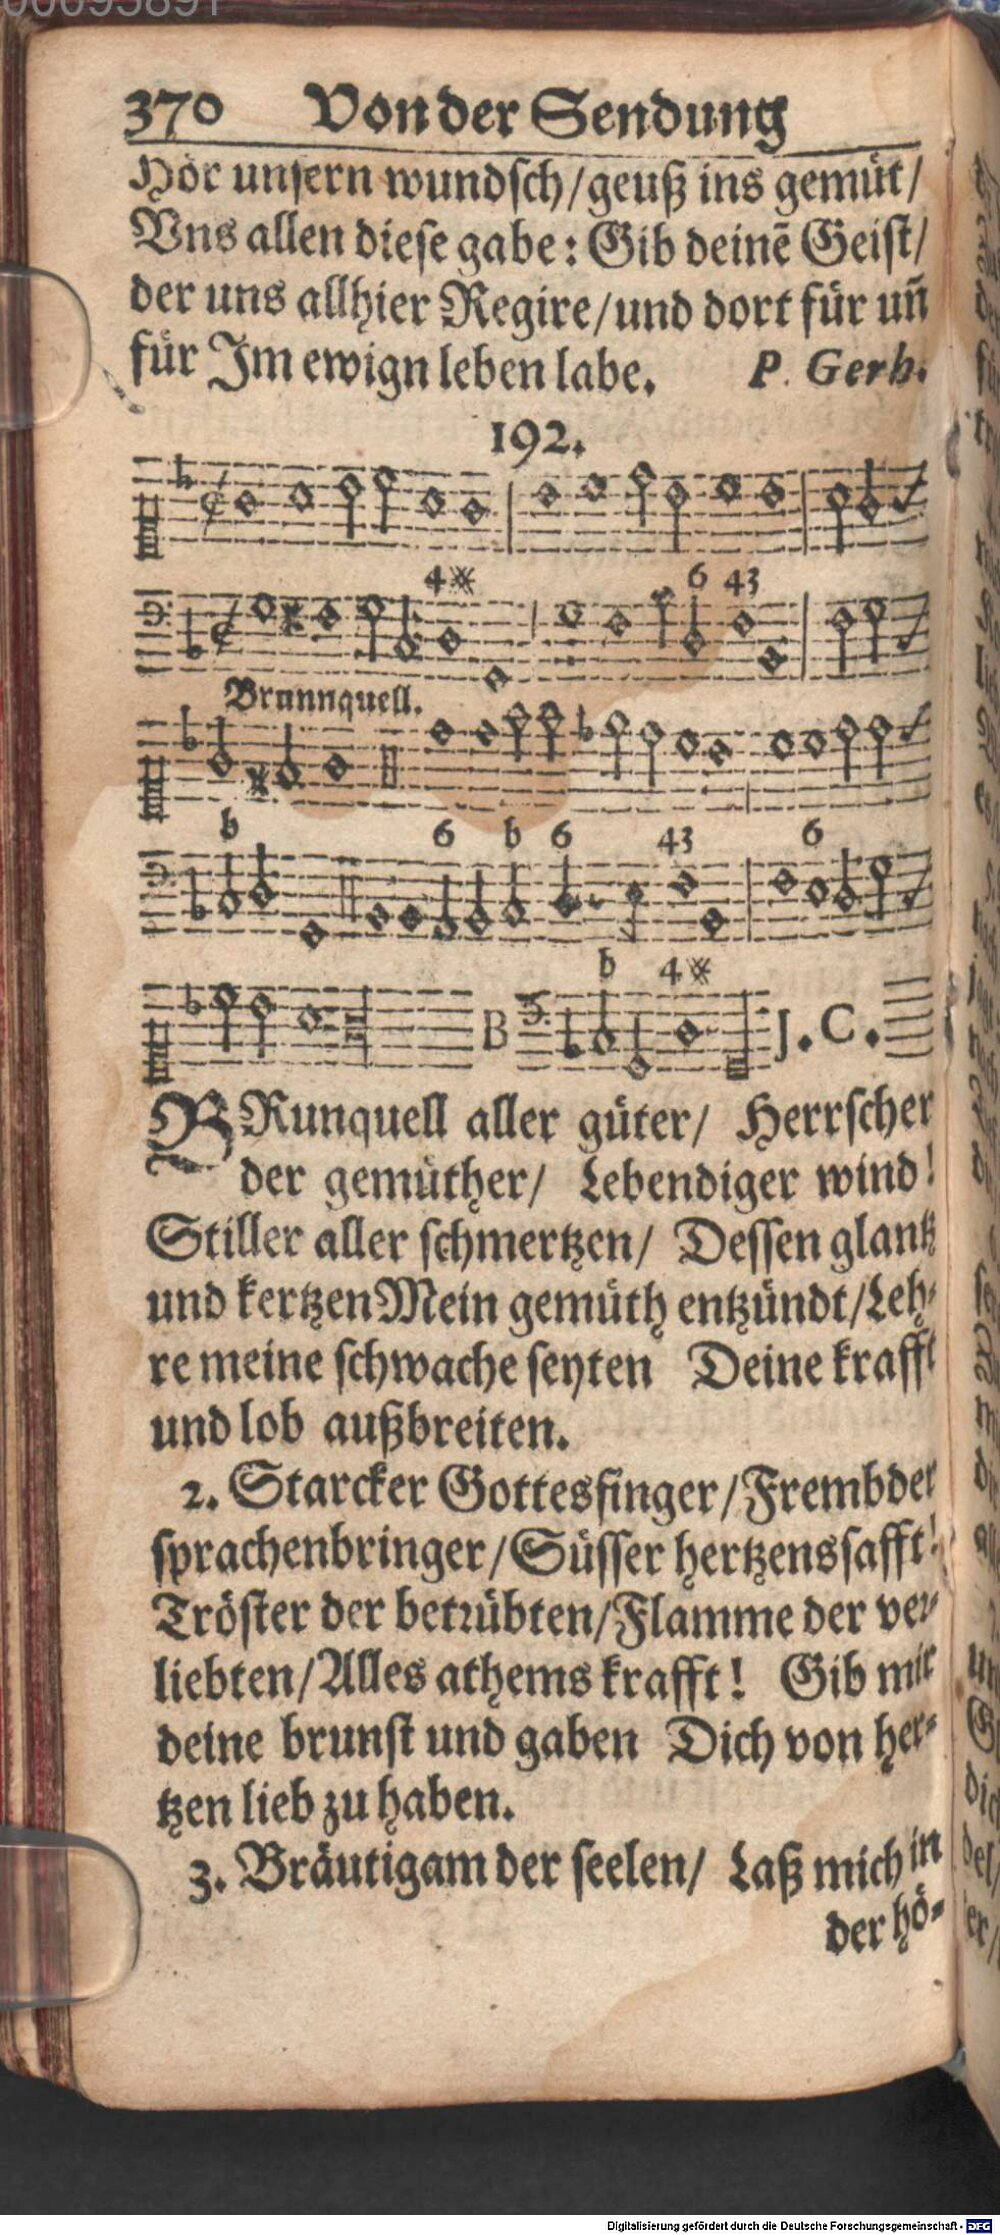 00095891
370 Von der Sendung
Hör unsern wundsch/geuß ins gemüt/
Vns allen diese gabe: Gib deinẽ Geist/
der uns allhier Regire/und dort für uñ
für Im ewign leben labe. P. Gerh.
192.
4 6 43
Brunnquell.
b 6 b 6 43 6
b 4
B J. C.
BRunquell aller güter/ Herrscher
der gemüther/ Lebendiger wind!
Stiller aller schmertzen/ Dessen glantz
und kertzen Mein gemüth entzündt/Leh-
re meine schwache seyten Deine krafft
und lob außbreiten.
2. Starcker Gottesfinger/Frembder
sprachenbringer/Süsser hertzenssafft!
Tröster der betrübten/Flamme der ver-
liebten/Alles athems krafft! Gib mir
deine brunst und gaben Dich von her-
tzen lieb zu haben.
3. Bräutigam der seelen/ Laß mich in
der hö-
Digitalisierung gefördert durch die Deutsche Forschungsgemeinschaft - DFG